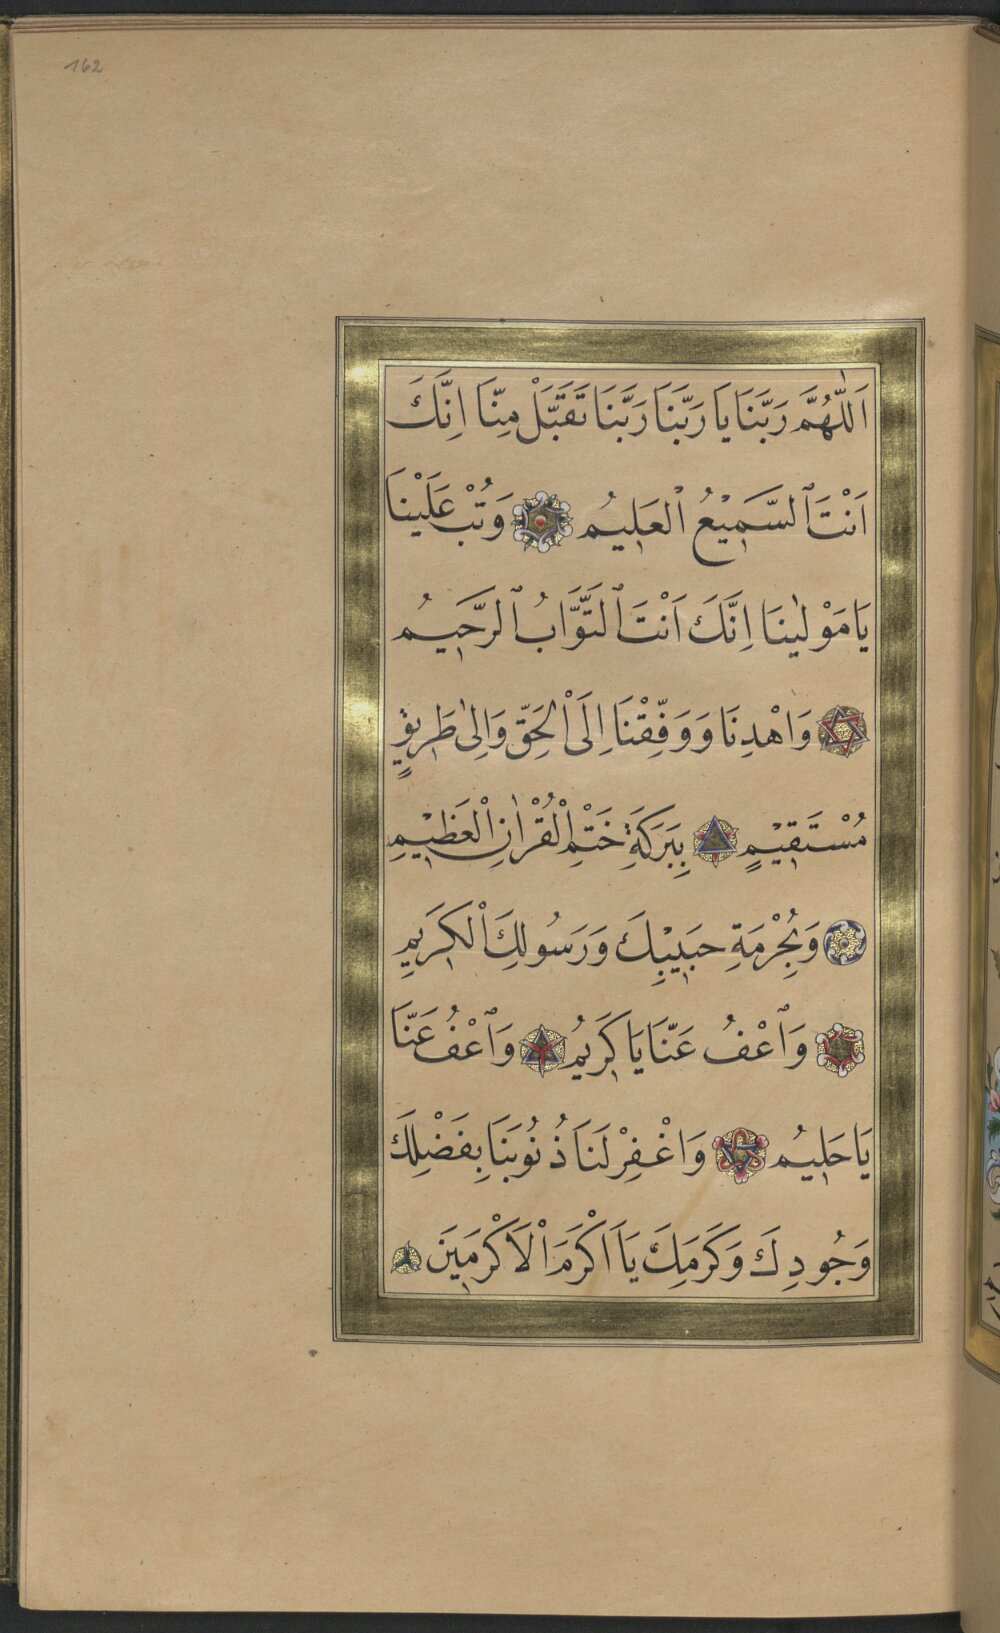 162
اَللّٰهُمَّ رَبَّنَا يَا رَبَّنَا رَبَّنَا تَقَبَّلْ مِنَّا اِنَّكَ
اَنْتَ ٱلسَّمِيْعُ الْعَلِيمُ وَتُبْ عَلَيْنَا
يَا مَوْلٰينَا اِنَّكَ اَنْتَ ٱلتَّوَّابُ ٱلرَّحِيمُ
وَاهْدِنَا وَوَفِّقْنَا اِلَى الْحَقِّ وَاِلٰى طَرِيقٍ
مُسْتَقِيْمٍ بِبَرَكَةِ خَتْمِ الْقُرْاٰنِ الْعَظِيْمِ
وَبِحُرْمَةِ حَبِيْبِكَ وَرَسُولِكَ الْكَرِيمِ
وَٱعْفُ عَنَّا يَا كَرِيمُ وَٱعْفُ عَنَّا
يَا حَلِيمُ وَاغْفِرْ لَنَا ذُنُوبَنَا بِفَضْلِكَ
وَجُودِكَ وَكَرَمِكَ يَا اَكْرَمَ الْاَكْرَمِينَ